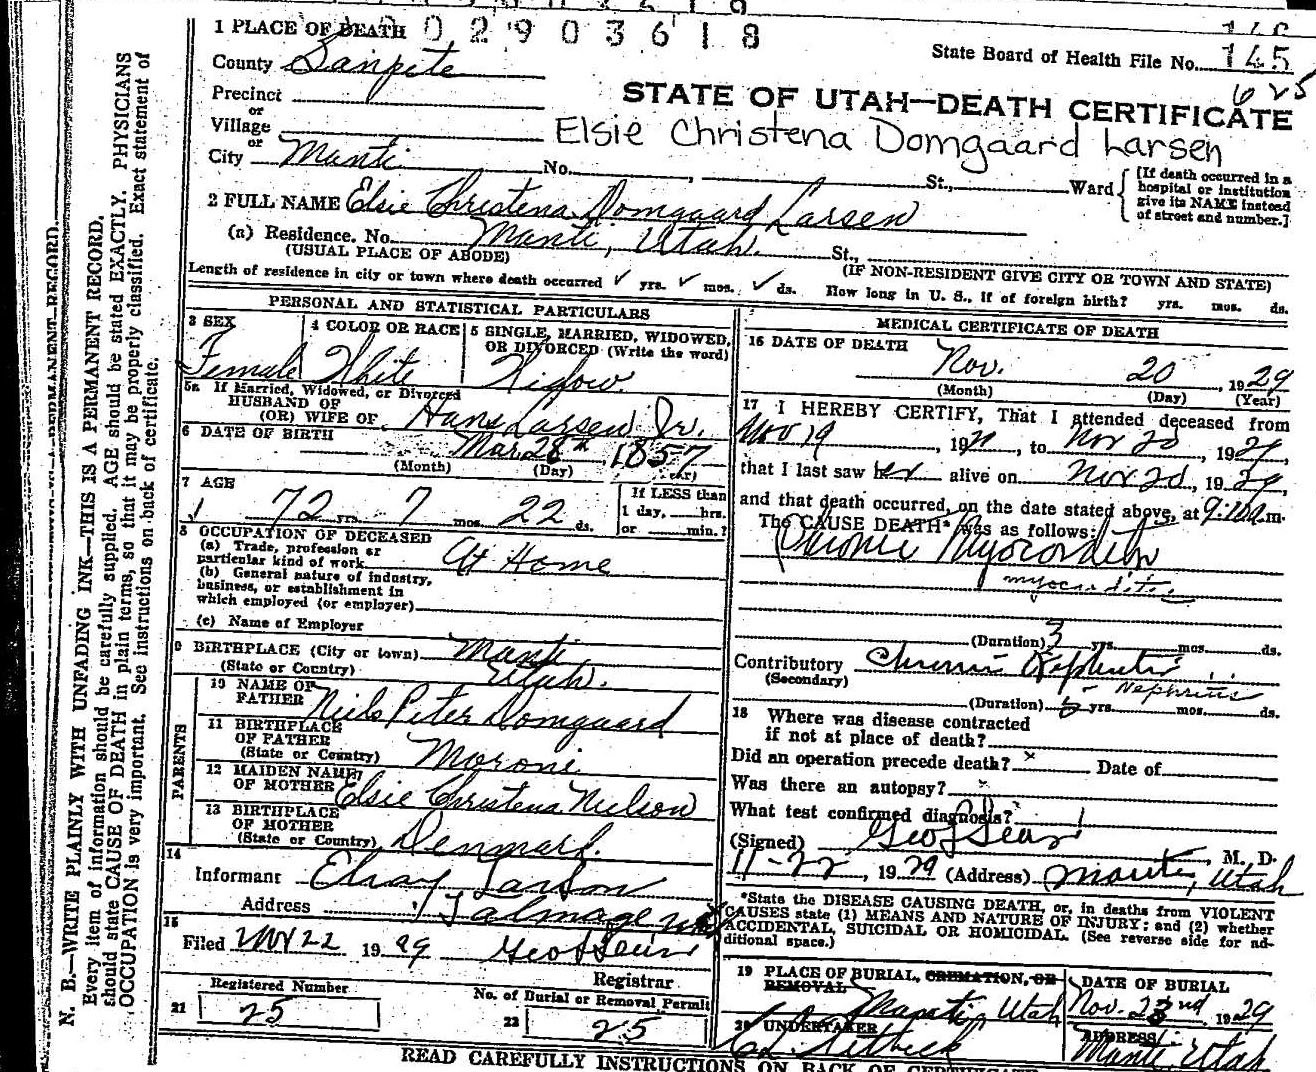 1 PLACE OF DEATH 0 2 9 0 3 6 1 8
State Board of Health File No. 145
625
County Sanpete
STATE OF UTAH—DEATH CERTIFICATE
Precinct
or
Village
Elsie Christena Domgaard Larsen
or
City Manti No. , St., Ward
[If death occurred in a hospital or institution give its NAME instead of street and number.]
2 FULL NAME Elsie Christena Domgaard Larsen
(a) Residence. No. Manti, Utah. St.,
(USUAL PLACE OF ABODE) (IF NON-RESIDENT GIVE CITY OR TOWN AND STATE)
Length of residence in city or town where death occurred ✓ yrs. ✓ mos. ✓ ds. How long in U. S., if of foreign birth? yrs. mos. ds.
PERSONAL AND STATISTICAL PARTICULARS
3 SEX 4 COLOR OR RACE 5 SINGLE, MARRIED, WIDOWED, OR DIVORCED (Write the word)
Female White Widow
5a If Married, Widowed, or Divorced
HUSBAND OF
(OR) WIFE OF Hans Larsen Jr.
6 DATE OF BIRTH Mar 28th 1857
(Month) (Day)
7 AGE 72 yrs. 7 mos. 22 ds.
If LESS than
1 day, hrs.
or min.?
8 OCCUPATION OF DECEASED
(a) Trade, profession or
particular kind of work At Home
(b) General nature of industry,
business, or establishment in
which employed (or employer)
(c) Name of Employer
9 BIRTHPLACE (City or town) Manti
(State or Country) Utah.
PARENTS
10 NAME OF
FATHER Niels Peter Domgaard
11 BIRTHPLACE
OF FATHER
(State or Country) Moroni
12 MAIDEN NAME
OF MOTHER Elsie Christena Nielson
13 BIRTHPLACE
OF MOTHER
(State or Country) Denmark.
14
Informant Elray Larson
Address Talmage
15
Filed Nov 22 1929
Registrar
Registered Number
21 25
No. of Burial or Removal Permit
22 25
MEDICAL CERTIFICATE OF DEATH
16 DATE OF DEATH
Nov. 20, 1929
(Month) (Day) (Year)
17 I HEREBY CERTIFY, That I attended deceased from
Nov 19, 192, to Nov 20, 1929,
that I last saw her alive on Nov 20, 1929,
and that death occurred, on the date stated above, at m.
The CAUSE DEATH* was as follows:
Chronic Myocarditis
(Duration) 3 yrs. mos. ds.
Contributory Chronic Nephritis
(Secondary) Nephritis
(Duration) 5 yrs. mos. ds.
18 Where was disease contracted
if not at place of death?
Did an operation precede death? × Date of
Was there an autopsy?
What test confirmed diagnosis?
(Signed) , M. D.
11-22, 1929 (Address) Manti, Utah
*State the DISEASE CAUSING DEATH, or, in deaths from VIOLENT
CAUSES state (1) MEANS AND NATURE OF INJURY; and (2) whether
ACCIDENTAL, SUICIDAL OR HOMICIDAL. (See reverse side for ad-
ditional space.)
19 PLACE OF BURIAL, CREMATION, OR REMOVAL DATE OF BURIAL
Manti, Utah Nov. 22nd 1929
20 UNDERTAKER ADDRESS
Manti, Utah
READ CAREFULLY INSTRUCTIONS ON BACK OF CERTIFICATE
N. B.—WRITE PLAINLY WITH UNFADING INK—THIS IS A PERMANENT RECORD.
Every item of information should be carefully supplied. AGE should be stated EXACTLY. PHYSICIANS
should state CAUSE OF DEATH in plain terms, so that it may be properly classified. Exact statement of
OCCUPATION is very important. See instructions on back of certificate.